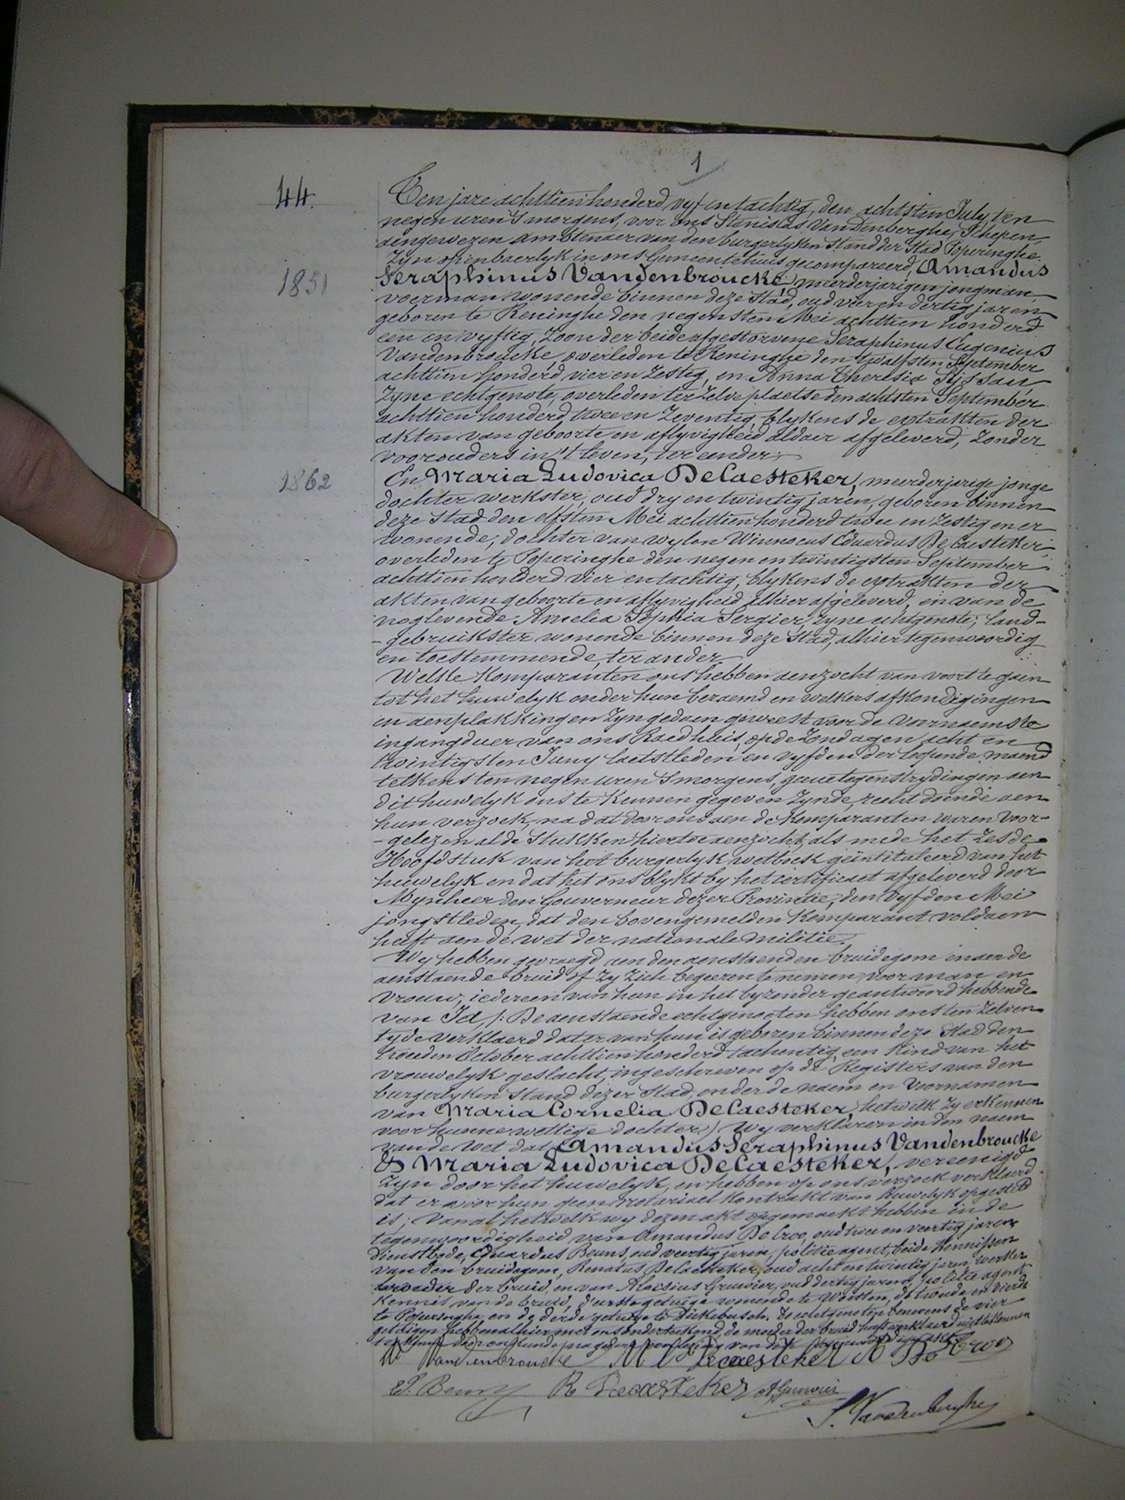 1
44.
Een jare achttien honderd vyf en tachtig, den achtsten July ten
negen uren 's morgens, voor ons Stenislas Vandenberghe, Schepen,
aengewezen ambtenaer van den burgerlyken Stand der Stad Poperinghe
zyn openbaerlyk in ons Gemeentehuis gecompareerd, Amandus
1851
Seraphinus Vandenbroucke, meerderjarigen jongman,
voerman wonende binnen deze Stad, oud vier en dertig jaren,
geboren te Reninghe den negensten Mei achttien honderd
een en vyftig, zoon der beide afgestorvene Seraphinus Eugenius
Vandenbroucke, overleden te Reninghe den twaelfsten September
achttien honderd vier en zestig, en Anna Theresia
zyne echtgenote, overleden ter zelve plaetse den achtsten September
achttien honderd twee en zeventig, blykens de extrakten der
akten van geboorte en aflyvigheid aldaer afgeleverd, zonder
voorouders in 't leven, ter eender
1862
En Maria Ludovica DeCaesteker, meerderjarige jonge
dochter werkster, oud dry en twintig jaren, geboren binnen
deze Stad den elfsten Mei achttien honderd twee en zestig en er
wonende, dochter van wylen Winnocus Eduardus DeCaesteker
overleden te Poperinghe den negen en twintigsten September
achttien honderd vier en tachtig, blykens de extrakten der
akten van geboorte en aflyvigheid alhier afgeleverd, en van de
noglevende Amelia Sophia Sergier, zyne echtgenote; land-
-gebruikster wonende binnen deze Stad, alhier tegenwoordig
en toestemmende, ter ander
Welke Komparanten ons hebben aenzocht van voort te gaen
tot het huwelyk onder hun beraemd en welkers afkondigingen
en aenplakkingen zyn gedaen geweest voor de voornaemste
ingangdeur van ons Raedhuis, op de Zondagen acht en
twintigsten Juny laetstleden en vyfden der loopende maend
telkens ten negen uren 's morgens, geene tegenstrydingen aen
dit huwelyk ons te kennen gegeven zynde, recht doende aen
hun verzoek, na dat door ons aen de Komparanten waren voor-
-gelezen al de Stukken hiertoe aenzocht, als mede het zesde
Hoofdstuk van het burgerlyk wetboek geïntituleerd van het
huwelyk en dat het ons blykt by het certificaet afgeleverd door
Mynheer den Gouverneur dezer Provincie, den vyfden Mei
jongstleden, dat den bovengemelden Komparant voldaen
heeft aen de wet der nationale militie,
Wy hebben gevraegd aen den aenstaenden bruidegom en aen de
aenstaende bruid of zy zich begeeren te nemen voor man en
vrouw, iedereen van hun in het byzonder geantwoord hebbende
van Ja; De aenstaende echtgenooten hebben ons ten zelven
tyde verklaerd dat er van hun is geboren binnen deze Stad den
tweeden October achttien honderd tachentig, een kind van het
vrouwelyk geslacht, ingeschreven op de Registers van den
burgerlyken Stand dezer Stad, onder de naem en voornamen
van Maria Cornelia DeCaesteker, hetwelk zy erkennen
voor hunne wettige dochter; Wy verklaren in den naem
van de Wet dat Amandus Seraphinus Vandenbroucke
& Maria Ludovica DeCaesteker, vereenigd
zyn door het huwelyk, en hebben op ons verzoek verklaerd
dat er voor hun geen notariael kontrakt van huwelyk opgesteld
is; Van al hetwelk wy dezen akt opgemaekt hebben in de
tegenwoordigheid van Amandus De Croo, oud twee en veertig jaren,
dienstbode, Eduardus Beuns, oud veertig jaren, politie agent, beide kennissen
van den bruidegom, Renatus DeCaesteker, oud acht en twintig jaren, werker
broeder der bruid, en van Aloysius Gruwier, oud dertig jaren, politie agent
kennis van de bruid, d'eerste getuige wonende te Westen, de tweede en vierde
te Poperinghe en de derde getuige te Dickebusch. De echtgenooten benevens de vier
getuigen hebben alhier met ons onderteekend, de moeder der bruid heeft verklaerd niet te kunnen
Vandenbroucke M L Decaesteker A De Croo
E. Beuns R Decaesteker A Gruwier
S. Vandenberghe